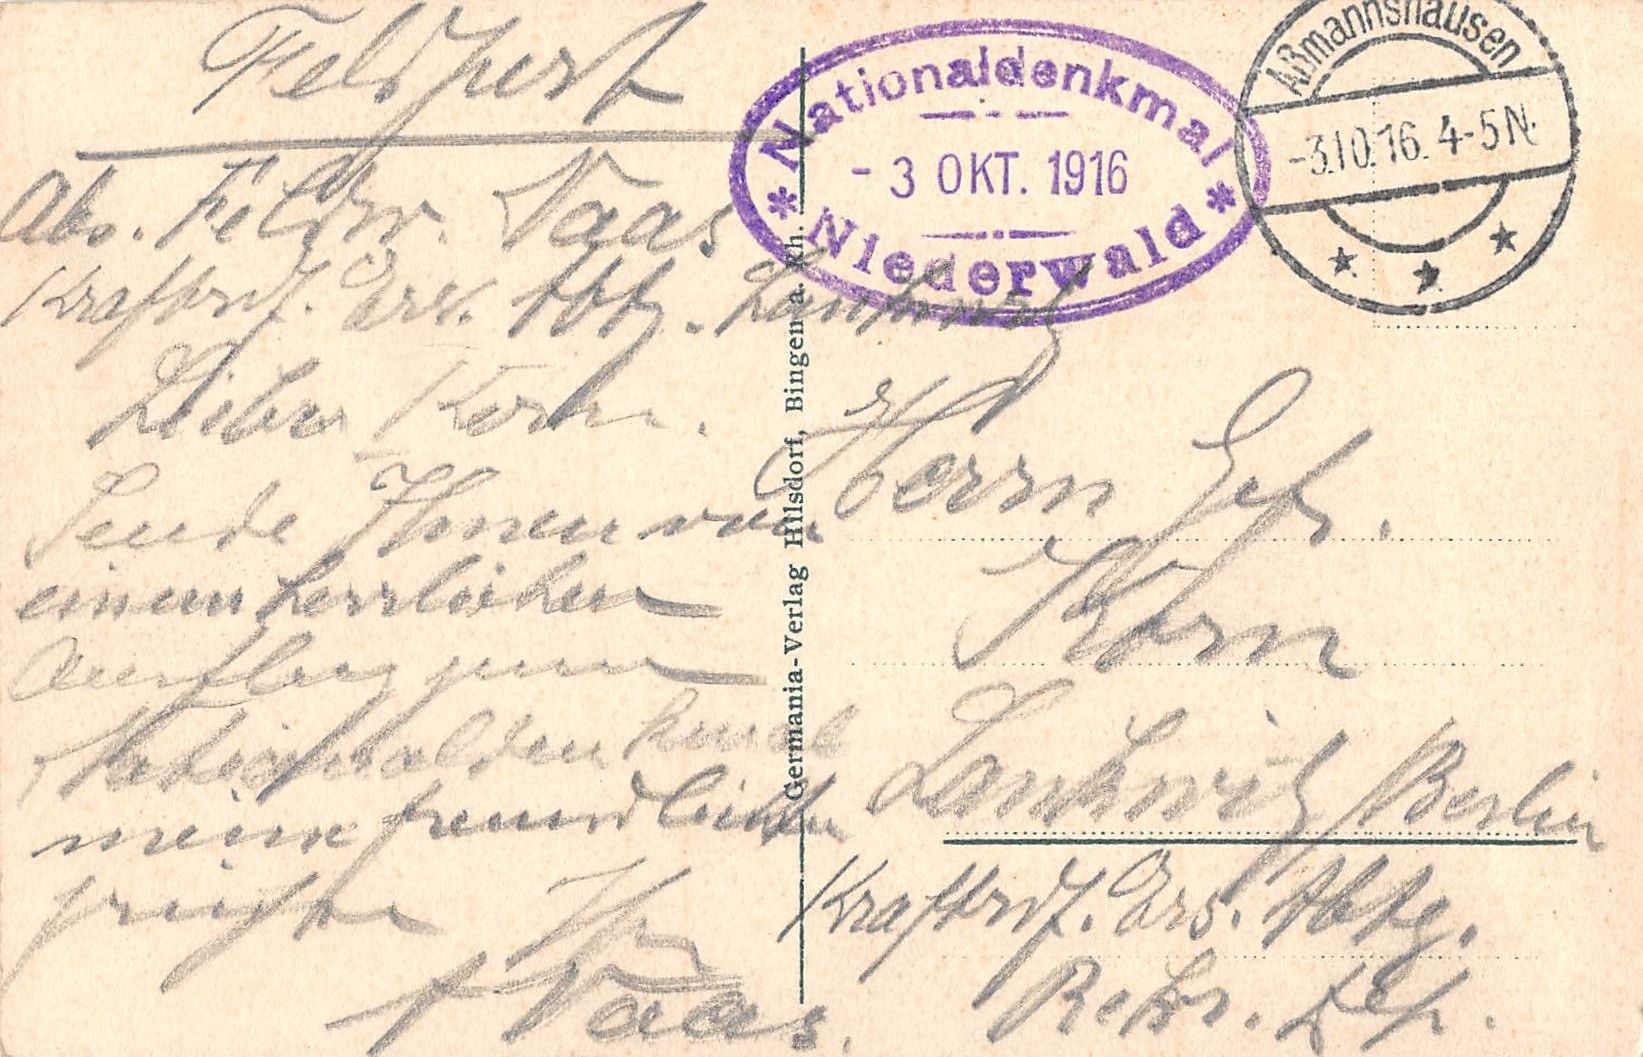 Feldpost
Abs. Feldw. Vaas
Kraftrdf. Ers. Abtg. Lankwitz
Lieber Korn.
Sende Ihnen von
einem herrlichen
Ausflug zum
Nationaldenkmal
meine freundlichen
grüße Ihr
Vaas.
Germania-Verlag Hillsdorf, Bingen a. Rh.
Nationaldenkmal
- 3 OKT. 1916
* Niederwald *
Aßmannshausen
-3.10.16. 4-5 N.
Herrn Gefr.
Korn
Lankwitz/Berlin
Kraftrdf. Ers. Abtg.
Rekr. Dep.